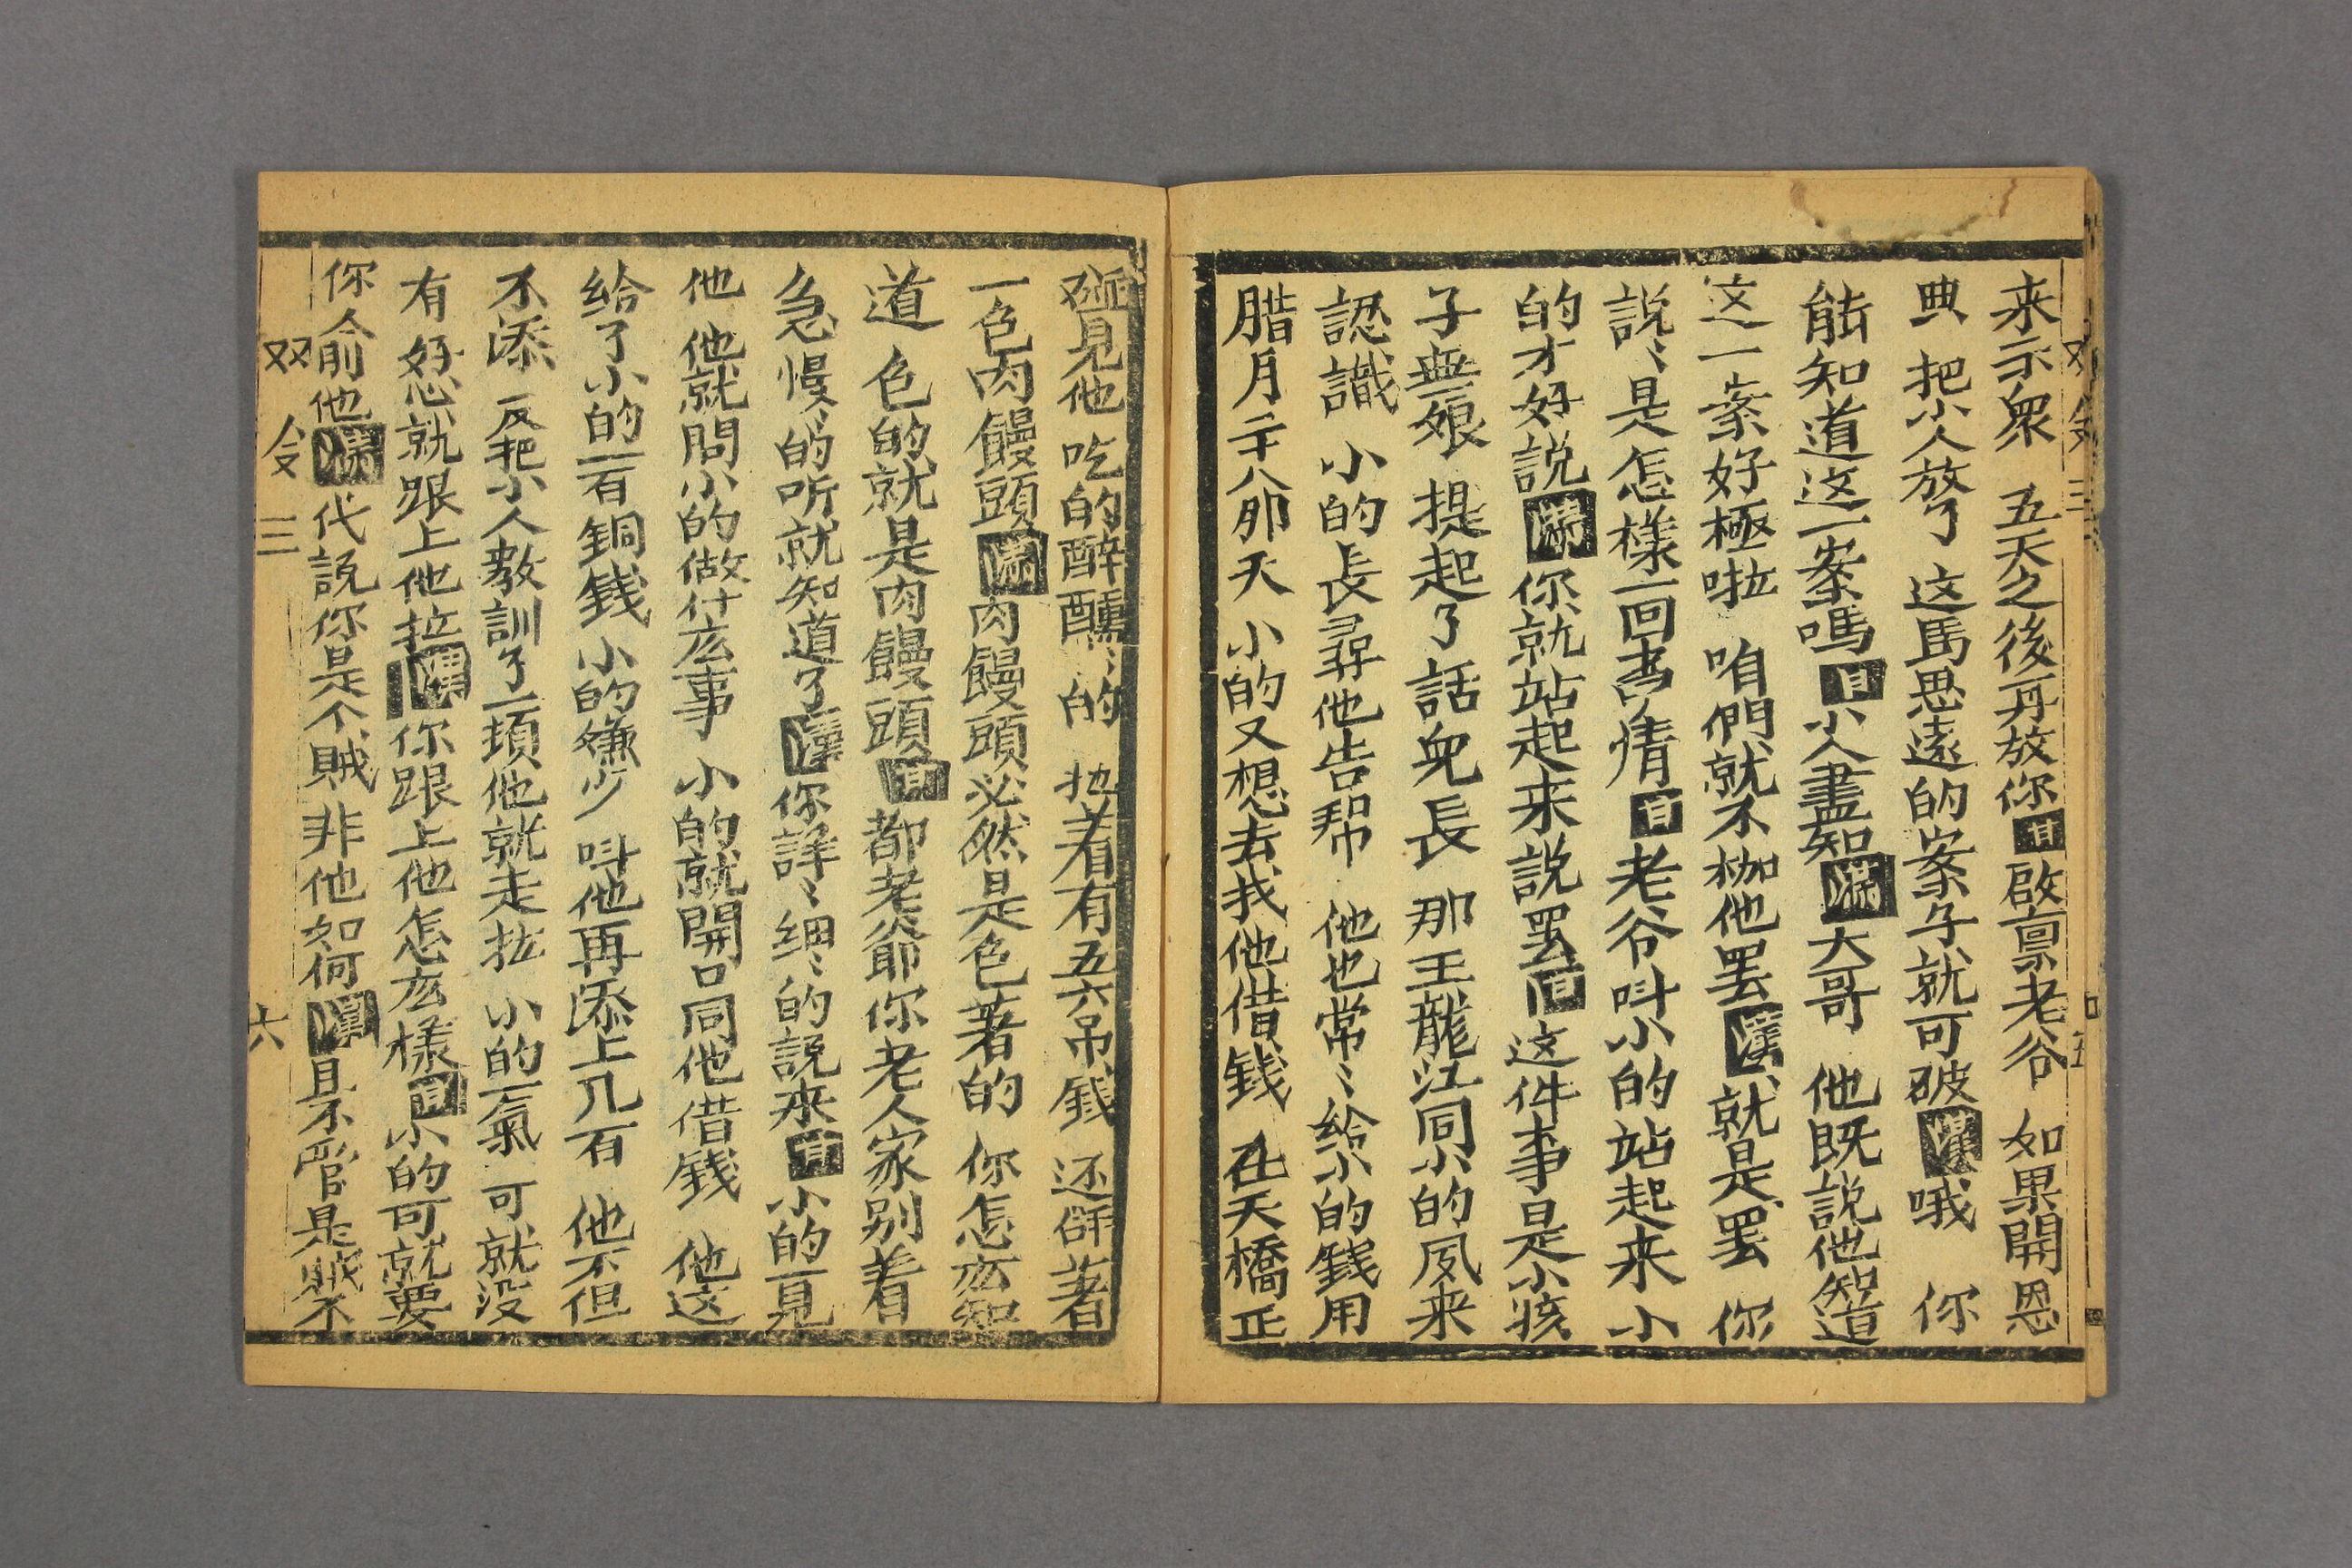 来示衆 五天之後再放你 啟禀老爷 如果開恩
典 把小人放了 这馬思遠的案子就可破 滿 哦 你
能知道这一案嗎 小人盡知 滿 大哥 他既説他知道
这一案好極啦 咱們就不枷他罢 漢 就是罢 你
説〻是怎樣一回事情 老爷呌小的站起来 小
的才好説 滿 你就站起来説罢 这件事是小孩
子無娘 提起了話兒長 那王龍江同小的夙来
認識 小的長尋他告帮 他也常〻給小的錢用
腊月二十八那天 小的又想去找他借錢 在天橋正
碰見他 吃的醉醺〻的 拖着有五六吊錢 还辥著
一色肉饅頭 滿 肉饅頭必然是色著的 你怎么知
道 色的就是肉饅頭 都老爺你老人家别着
急 慢〻的听就知道了 漢 你詳〻細〻的説来 小的一見
他 他就問小的做什么事 小的就開口同他借錢 他这
給了小的一百銅錢 小的嫌少 呌他再添上几百 他不但
不添 反把小人教訓了一頓他就走拉 小的一氣 可就没
有好心就跟上他拉 漢 你跟上他怎么樣 小的可就要
你偷他 滿 代説你是个賊 非他如何 漢 且不管是賊不
双合 三 六